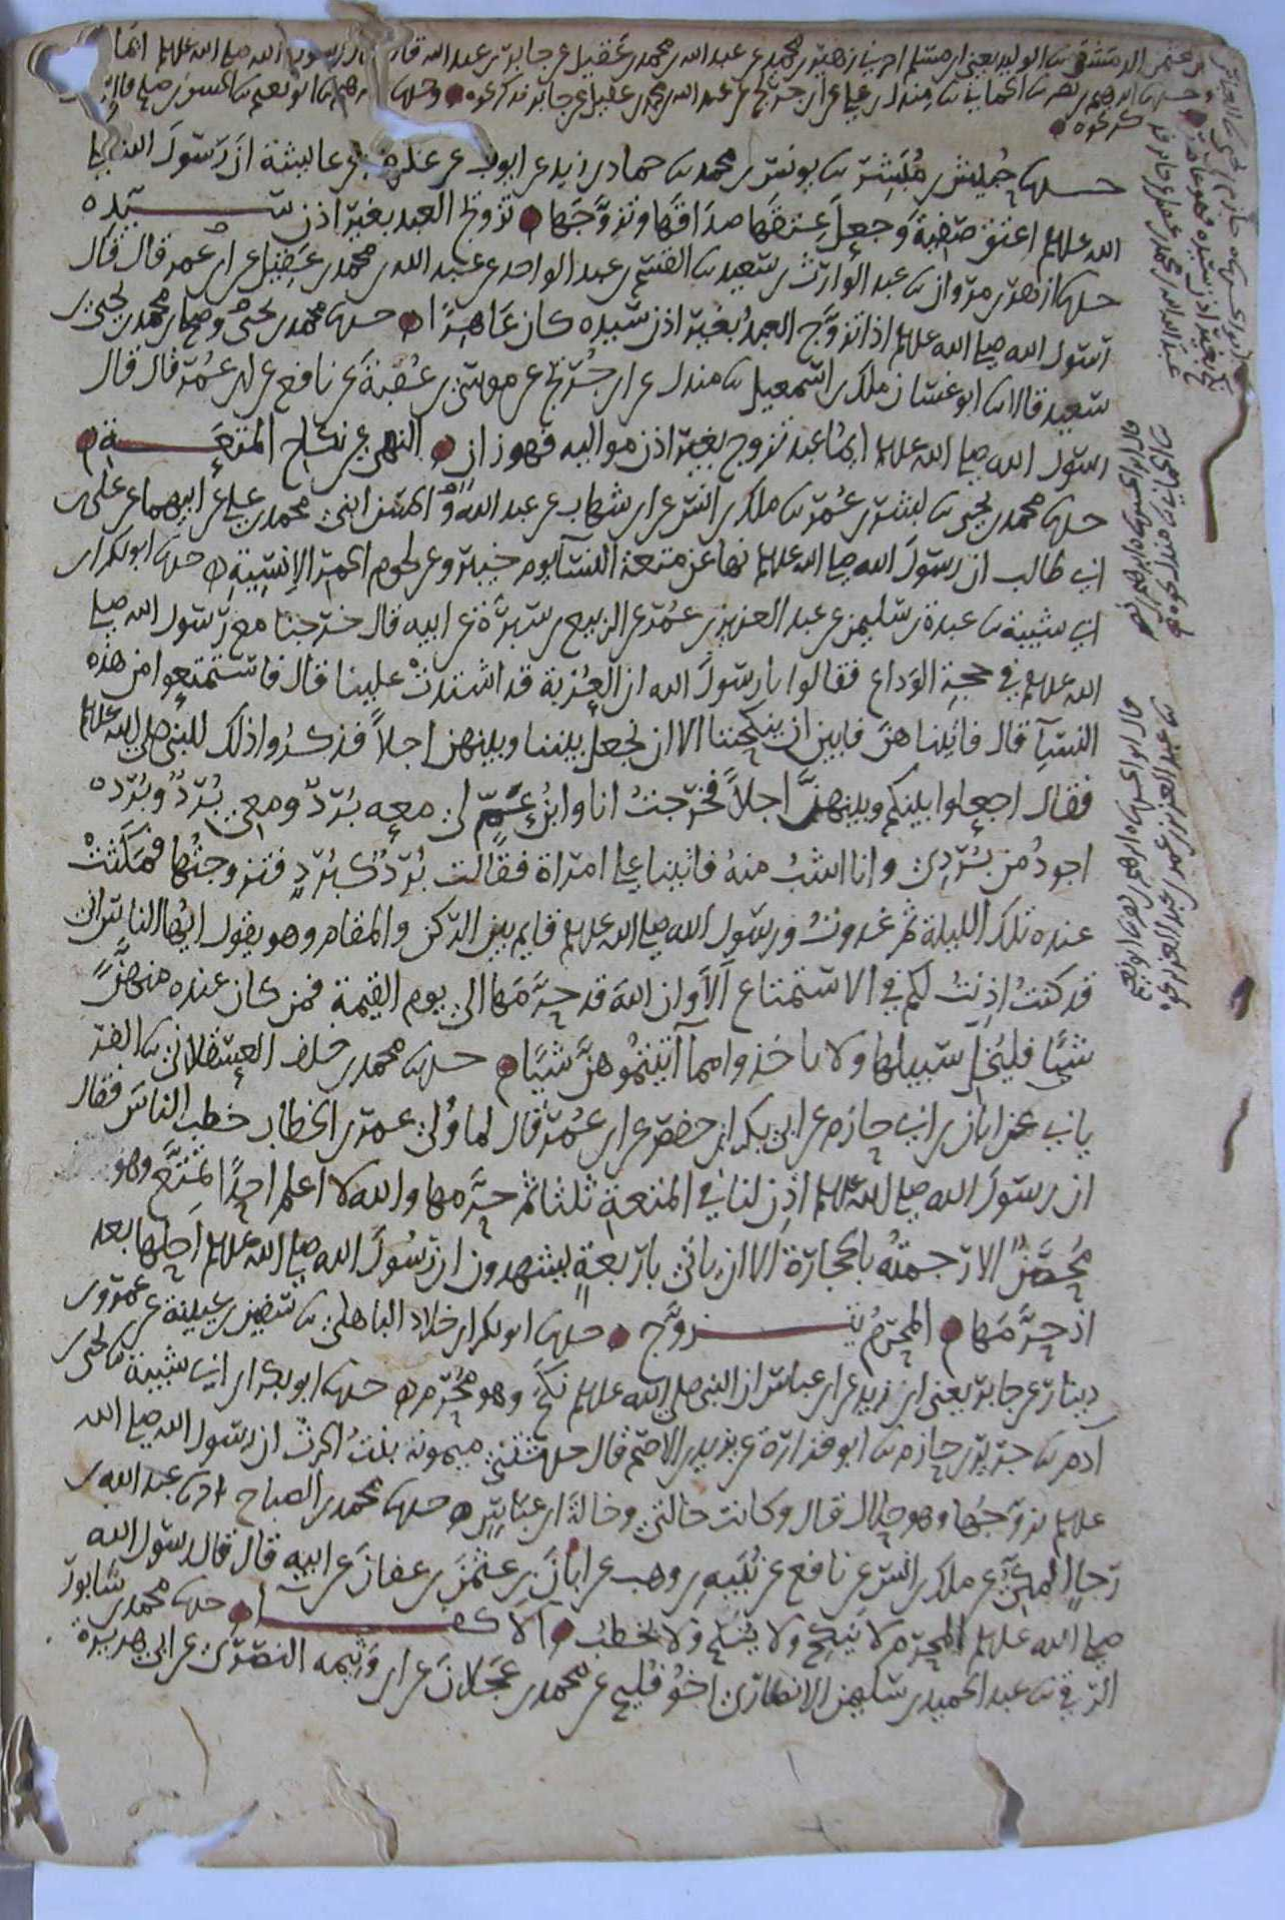 عثمن الدمشقي ثنا الوليد يعني ابن مسلم اخبرني زهير بن محمد عن عبد الله بن محمد بن عقيل عن جابر بن عبد الله قال قال رسول الله صلى الله علىه ايما
حدثنا ابرهيم بن نصر ثنا الحماني ثنا مندل بن علي عن ابن جريج عن عبد الله بن محمد بن عقيل عن جابر فذكر نحوه وحدثنا ابرهيم ثنا ابو نعيم ثنا الحسن بن صالح
فذكر نحوه
حدثنا حبيش بن مبشر ثنا يونس بن محمد ثنا حماد بن زيد عن ايوب عن عكرمة عن عايشة ان رسول الله صلى
الله علىه اعتق صفية وجعل عتقها صداقها وتزوجها تزويج العبد بغير اذن سيده
حدثنا ازهر بن مروان ثنا عبد الوارث بن سعيد ثنا القسم بن عبد الواحد عن عبد الله بن محمد بن عقيل عن ابن عمر قال قال
رسول الله صلى الله علىه اذا تزوج العبد بغير اذن سيده كان عاهرا حدثنا محمد بن يحيى وصالح بن محمد بن يحيى بن
سعيد قالا ثنا ابو غسان ملك بن اسمعيل ثنا مندل عن ابن جريج عن موسى بن عقبة عن نافع عن ابن عمر قال قال
رسول الله صلى الله علىه ايما عبد تزوج بغير اذن مواليه فهو زان النهي عن نكاح المتعة
حدثنا محمد بن يحيى ثنا بشر بن عمر ثنا ملك بن انس عن ابن شهاب عن عبد الله والحسن ابني محمد بن علي عن ابيهما عن علي بن
ابي طالب ان رسول الله صلى الله علىه نها عن متعة النسآ يوم خيبر وعن لحوم الحمر الانسية حدثنا ابو بكر بن
ابي شيبة ثنا عبدة بن سليمن عن عبد العزيز بن عمر عن الربيع بن سبرة عن ابيه قال خرجنا مع رسول الله صلى
الله علىه في حجة الوداع فقالوا يا رسول الله ان العزبة قد اشتدت علينا قال فاستمتعوا من هذه
النسآ قال فاتيناهن فابين ان ينكحننا الا ان نجعل بيننا وبينهن اجلا فذكروا ذلك للنبي صلى الله علىه
فقال اجعلوا بينكم وبينهن اجلا فخرجت انا وابن عم لي معه برد ومعي برد وبرده
اجود من بردي وانا اشب منه فاتينا على امراة فقالت برد كبرد فتزوجتها فمكثت
عنده تلك الليلة ثم غدوت ورسول الله صلى الله علىه قايم بين الركن والمقام وهو يقول ايها الناس اني
قد كنت اذنت لكم في الاستمتاع الا وان الله قد حرمها الى يوم القيمة فمن كان عنده منهن
شيا فليخل سبيلها ولا تاخذوا مما آتيتموهن شيا حدثنا محمد بن خلف العسقلاني ثنا الفر
يابي عن ابان بن ابي حازم عن ابي بكر بن حفص عن ابن عمر قال لما ولي عمر بن الخطاب خطب الناس فقال
ان رسول الله صلى الله علىه اذن لنا في المتعة ثلثا ثم حرمها والله لا اعلم احدا تمتع وهو
محصن الا رجمته بالحجارة الا ان ياتي باربعة يشهدون ان رسول الله صلى الله علىه احلها بعد
اذ حرمها المحرم يتزوج حدثنا ابو بكر بن خلاد الباهلي ثنا سفين بن عيينة عن عمرو بن
دينار عن جابر يعني ابن زيد عن ابن عباس ان النبي صلى الله علىه نكح وهو محرم حدثنا ابو بكر بن ابي شيبة ثنا يحيى بن
آدم ثنا جرير بن حازم ثنا ابو فزارة عن يزيد بن الاصم قال حدثتني ميمونة بنت الحرث ان رسول الله صلى الله
علىه تزوجها وهو حلال قال وكانت خالتي وخالة ابن عباس حدثنا محمد بن الصباح ثنا عبد الله بن
رجا المكي عن ملك بن انس عن نافع عن نبيه بن وهب عن ابان بن عثمن بن عفان عن ابيه قال قال رسول الله
صلى الله علىه المحرم لا ينكح ولا ينكح ولا يخطب الاكفا حدثنا محمد بن سابور
الرقي ثنا عبد الحميد بن سليمن الانصاري اخو فليح عن محمد بن عجلان عن ابن وثيمه النصري عن ابي هريرة
قال ابو الحسن ثنا ابرهيم بن نصر
ثنا الحماني ثنا مندل نحوه
قال ابو الحسن ثنا ابرهيم بن نصر ثنا ابو نعيم
ثنا عبد العزيز بن عمر بن عبد العزيز نحوه